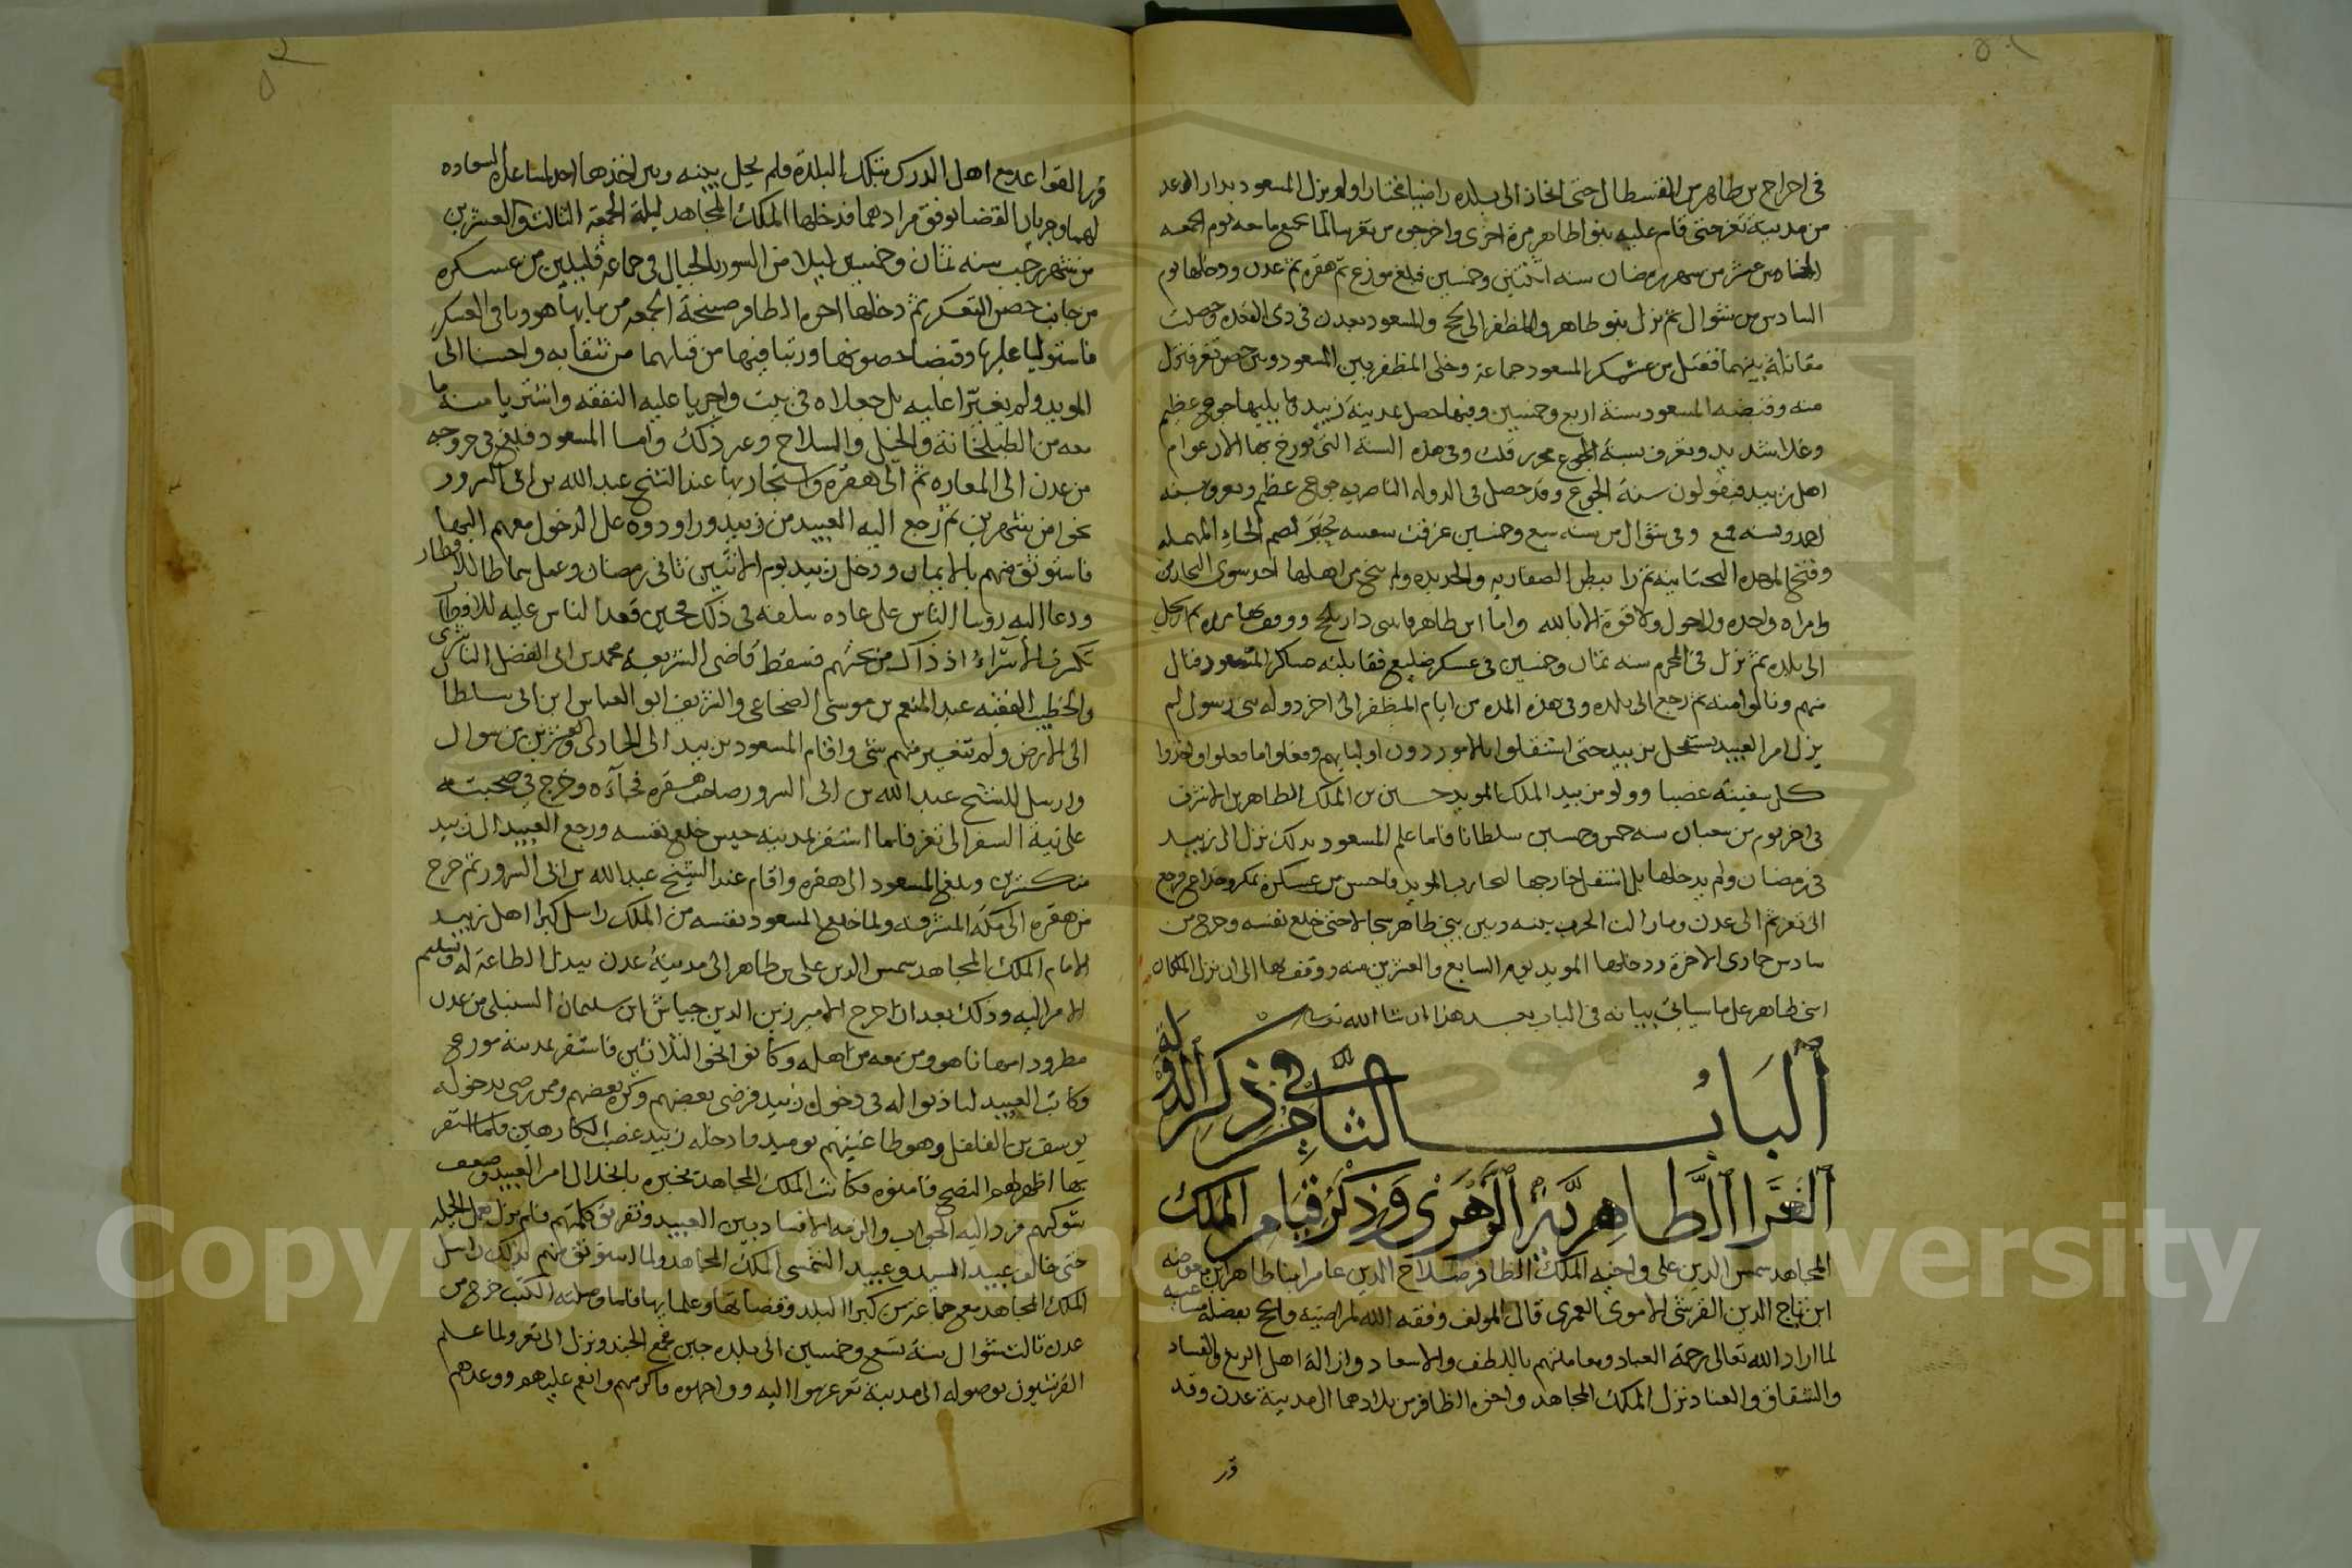 في اخراج بن طاهر من القسطال حتى انحاز الى بلده راضيا مختارا ولم يزل المسعود بدار الوعد
من مدينة تعز حتى قام عليه بنو طاهر مرة اخرى واخرجوه من تعز سالما بجميع ما معه يوم الجمعه
من شهر رمضان سنه اثنتين وخمسين فبلغ موزع ثم هقره ثم عدن ودخلها يوم
السادس من شوال ثم نزل بنو طاهر والمظفر الى لحج والمسعود بعدن في ذي القعده وحصلت
مقاتلة بينهما فقتل من عسكر المسعود جماعة وخلى المظفر بين المسعود وبين حصن تعز فنزل
منه وقبضه المسعود سنة اربع وخمسين وفيها حصل بمدينة زبيد وما يليها جوع عظيم
وغلا شديد وتعرف بسنة الجوع قلت وفي هذه السنة التي يورخ بها الان عوام
اهل زبيد فيقولون سنة الجوع وقد حصل في الدوله الناصريه جوع عظيم ويعرف بسنه
وفي شوال من سنه سبع وخمسين غرقت بضم الحاء المهمله
وفتح الموحده التحتانيه ثم را ببطن ولم ينج من اهلها احد سوى
وامراه واحده ولا حول ولا قوة الا بالله واما ابن طاهر
الى بلده ثم نزل في المحرم سنه ثمان وخمسين في عسكر فقابلته عساكر المسعود فنال
منهم ونالوا منه ثم رجع الى بلده وفي هذه المده من ايام المظفر الى اخر دوله بني رسول لم
يزل امر العبيد يستفحل بزبيد حتى استقلوا بالامور دون اوليايهم وفعلوا ما فعلوا واخذوا
كل سفينة غصبا وولو من زبيد الملك المويد حسين بن الملك الطاهر بن الاشرف
في اخر يوم من شعبان سنه خمس وخمسين سلطانا فلما علم المسعود بذلك نزل الى زبيد
في رمضان ولم يدخلها بل استقل خارجها لمحاربه المويد فاحس من عسكره بمكر وخداع فرجع
الى تعز ثم الى عدن وما زالت الحرب بينه وبين بني طاهر سجالا حتى خلع نفسه وخرج من
سادس جمادى الاخرة ودخلها المويد يوم السابع والعشرين منه ووقف بها الى ان نزل الملكان
ابنى طاهر على ما سياتي بيانه في الباب بعد هذا ان شا الله تعالى
الباب الثاني في ذكر الدولة
الغرا الطاهرية الزهرى وذكر قيام الملك
المجاهد شمس الدين علي واخيه الملك الظافر صلاح الدين عامر ابنا طاهر بن معوضه
ابن تاج الدين القرشي الاموي العمري قال المولف وفقه الله لمراضيه
لما اراد الله تعالى رحمة العباد ومعاملتهم باللطف والاسعاد وازالة اهل الزيغ والفساد
والشقاق والعناد نزل الملك المجاهد واخوه الظافر من بلادهما الى مدينة عدن وقد
قرر
قررا القواعد مع اهل الدرك بتلك البلدة فلم يحل بينه وبين اخذها احد لمساعدة السعاده
لهما وجريان القضا بوفق مرادهما فدخلها الملك المجاهد ليلة الجمعة الثالث والعشرين
من شهر رجب سنه ثمان وخمسين ليلا من السور بالحبال في جماعة قليلين من عسكره
من جانب حصن التعكر ثم دخلها اخوه الظافر صبيحة الجمعه من بابها هو وباقي العسكر
فاستوليا عليها وقبضا حصونها ورتبا فيها من قبلهما من يثقا به واحسنا الى
المويد ولم يغيرا عليه بل جعلاه في بيت واجريا عليه النفقه واشتريا منه ما
معه من الطبلخانة والخيل والسلاح وغير ذلك واما المسعود فبلغ في خروجه
من عدن الى المعاره ثم الى هقرة واستجار بها عند الشيخ عبد الله بن ابي السرور
نحوا من شهرين ثم رجع اليه العبيد من زبيد وراودوه على الدخول معهم اليها
فاستوثق منهم بالايمان ودخل زبيد يوم الاثنين ثاني رمضان وعمل سماطا للافطار
ودعا اليه روسا الناس على عاده سلفه في ذلك فحين قعد الناس عليه للافطار
تكسرت الاسراء اذ ذاك من تحتهم فسقط قاضي الشريعة محمد بن ابي الفضل الناشري
والخطيب الفقيه عبد المنعم بن موسى الضجاعي والشريف ابو العباس ابن ابي سلطا
الى الارض ولم يتغير منهم شي واقام المسعود بزبيد الى الحادي والعشرين من شوال
وارسل للشيخ عبد الله بن ابي السرور صاحب هقره فجآءه وخرج في صحبته
على نية السفر الى تعز فلما استقر بمدينه حيس خلع نفسه ورجع العبيد الى زبيد
منكسرين وبلغ المسعود الى هقره واقام عند الشيخ عبد الله بن ابي السرور ثم خرج
من هقره الى مكة المشرفة ولما خلع المسعود نفسه من الملك راسل كبرا اهل زبيد
الامام الملك المجاهد شمس الدين علي بن طاهر الى مدينة عدن ببذل الطاعة له وتسليم
الامر اليه وذلك بعد ان خرج الامير زين الدين جياش ابن سليمان السنبلي من عدن
مطرودا مهانا هو ومن معه من اهله وكانوا نحو الثلاثين فاستقر بمدينة موزع
وكاتب العبيد لياذنوا له في دخول زبيد فرضي بعضهم وكره بعضهم وممن رضي بدخوله
يوسف بن الفلفل وهو طاغيتهم يوميد فادخله زبيد غصب الكارهين فلما استقر
بها اظهر لهم النصح فامنوه فكاتب الملك المجاهد يخبره بانحلال امر العبيد وضعف
شوكتهم فرد اليه الجواب والزمه الافساد بين العبيد وتفريق كلمتهم فلم يزل يعمل الحيله
حتى خالف عبيد السيد وعبيد الشمسي الملك المجاهد ولما استوثق منهم لذلك راسل
الملك المجاهد مع جماعة من كبرا البلد فلما وصلته الكتب خرج من
عدن ثالث شوال سنة تسع وخمسين الى بلده جبن فجمع الجند ونزل الى تعز ولما علم
القرشيون بوصوله الى مدينة تعز عزموا اليه وواجهوه فاكرمهم وانعم عليهم ووعدهم
Copyright © King Saud University